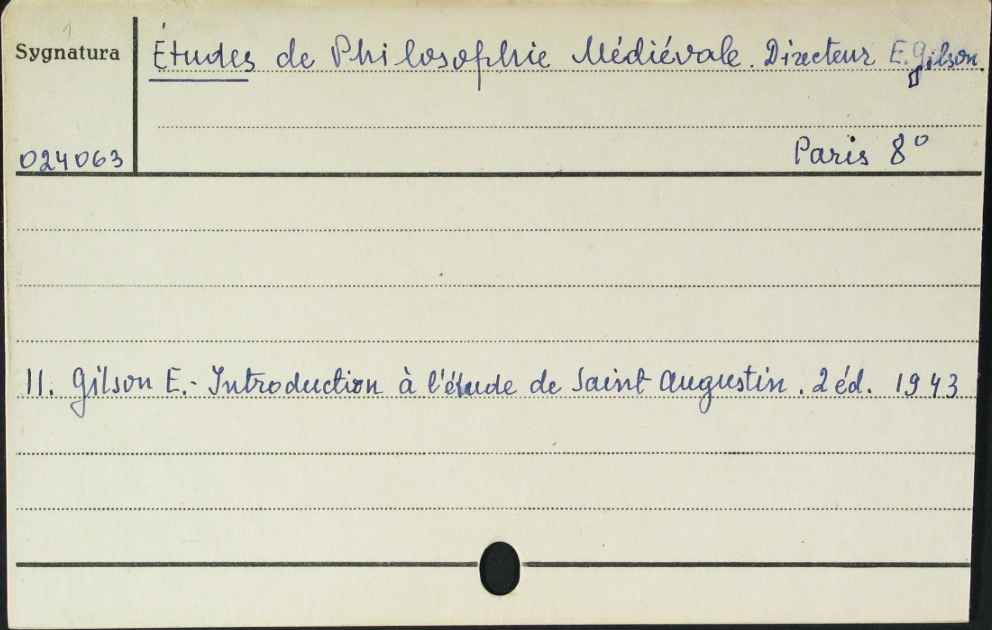 1
Sygnatura
Études de Philosophie Médiévale. Directeur E. Gilson.
024063
Paris 8°
11. Gilson E.- Introduction à l'étude de Saint Augustin. 2 éd. 1943